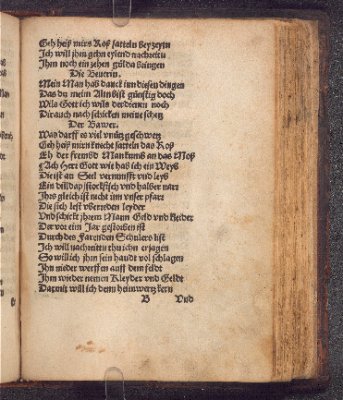 Geh heiß mirs Roß satteln bey zeyin
Ich will jhm gehn eylend nachreittn
Jhm noch ein zehen gülda bringen
Die Bewrin.
Mein Man hab danck inn diesen dingen
Das du mein Altn bist günstig doch
Wils Gott ich wils verdienen noch
Dir auch nach schicken meine schetz
Der Bawer.
Was darff es viel unnütz geschwetz
Geh heiß mirs knecht satteln das Roß
Eh der frembd Man kumb an das Moß
Ach Herr Gott wie hab ich ein Weyb
Die ist an Seel vernunfft und leyb
Ein dilldap stockfisch und halber narr
Jhrs gleich ist nicht inn unser pfarr
Die sich lest uberreden leyder
Und schickt jhrem Mann Geld und kleider
Der vor eim Jar gestorben ist
Durch des Farenden Schulers list
Ich will nachreittn thu ichn erjagen
So will ich jhm sein haudt vol schlagen
Jhn nieder werffen auff dem feldt
Jhm wieder nemen Kleyder und Geldt
Darmit will ich denn heimwertz kern
B Und